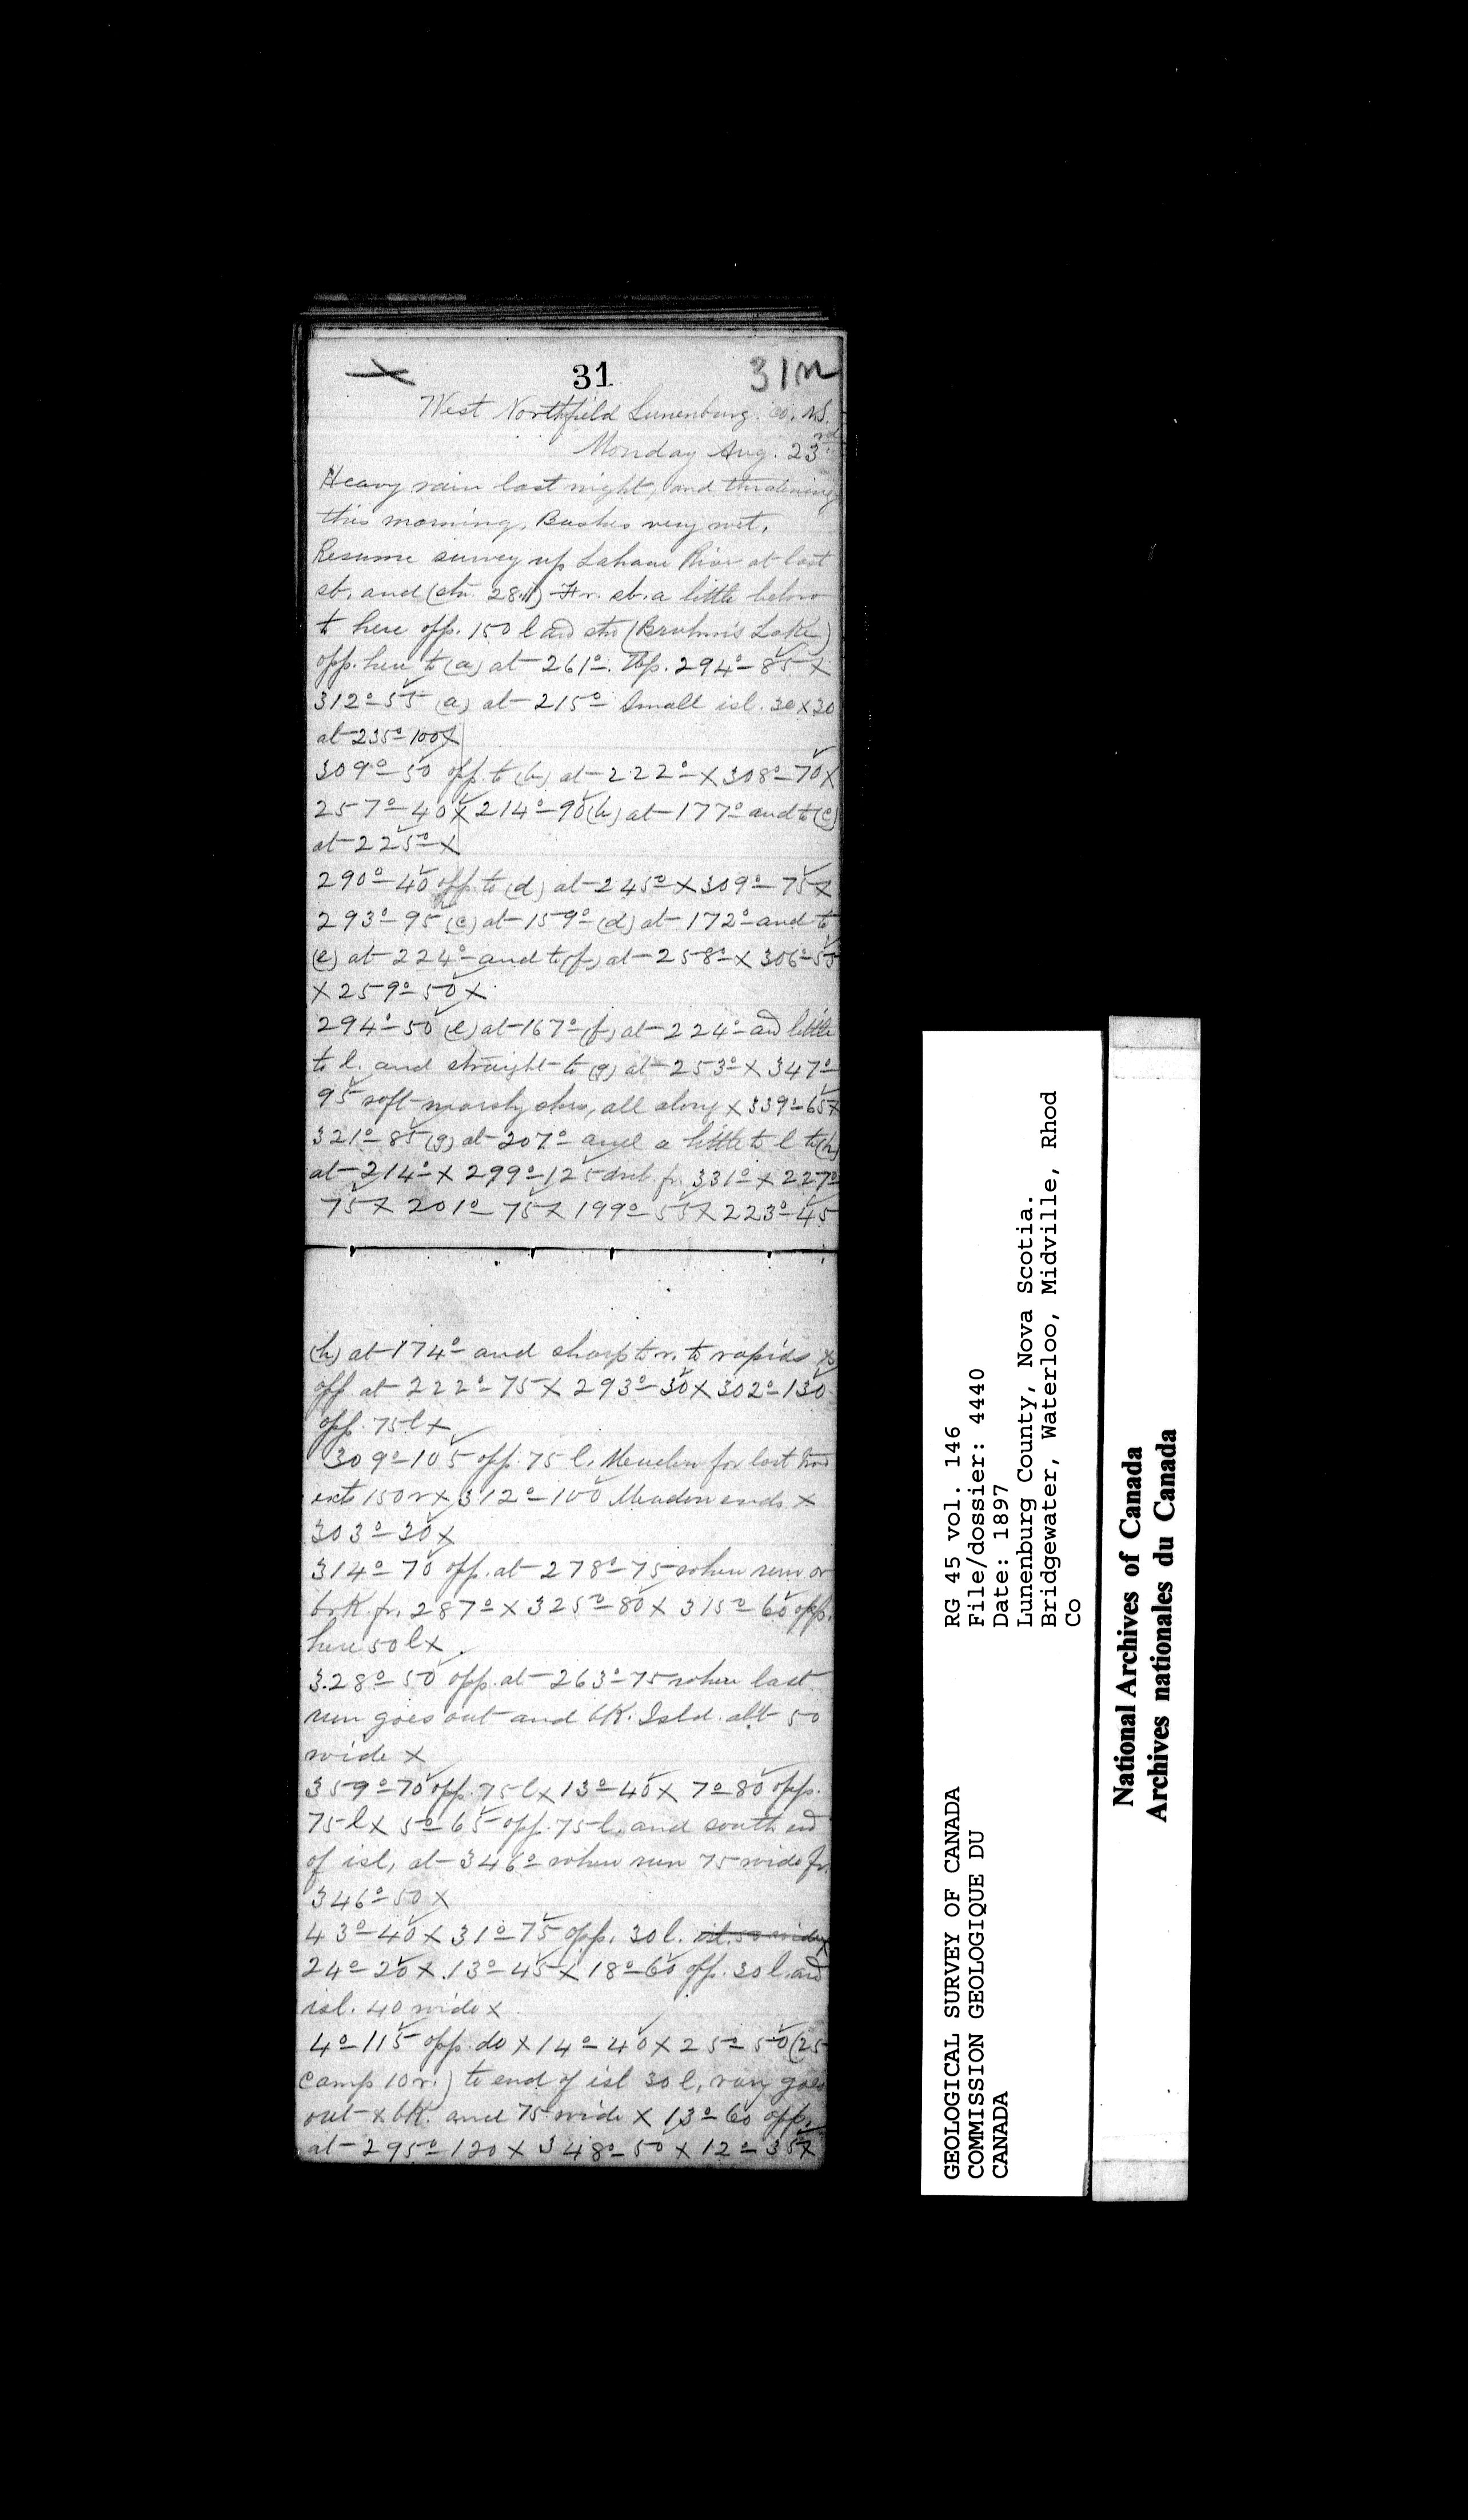 31 31m
West Northfield Lunenburg. Co. N.S.
Monday Aug. 23rd.
Heavy rain last night, and thratening
this morning. Bushes very wet.
Resume survey up Lahave River at last
st. and (stn. 28.) Fr. st. a little below
to here opp. 150 l and sto (Bruhm's Lake)
opp. here to (a) at 261º. Top. 294º 85 X
312º 55 (a) at 215º Small isl. 30 x 30
at 235º 100 X
309º 50 opp. to (b) at 222º X 308º 70 X
257º 40 X 214º 90 (b) at 177º and to (c)
at 225º X
290º 40 opp. to (d) at 245º X 309º 75 X
293º 95 (c) at 159º (d) at 172º and to
(e) at 224º and to (f) at 258º X 306º 55
X 259º 50 X
294º 50 (e) at 167º (f) at 224º and little
to l. and straight to (g) at 253º X 347º
95 soft marshy sho, all along X 339º 65 X
321º 85 (g) at 207º and a little to l to (h)
at 214º X 299º 125 fr. 331º X 227º
75 X 201º 75 X 199º 55 X 223º 45
(h) at 174º and sharp to r. to rapids X
opp. at 222º 75 X 293º 30 X 302º 130
opp. 75 l X
309º 105 opp. 75 l. Meadow for last two
exts 150 r X 312º 100 Meadow ends X
303º 30 X
314º 70 opp. at 278º 75 where run or
brk. fr. 287º X 325º 80 X 315º 60 opp.
here 50 l X
328º 50 opp. at 263º 75 where last
run goes out and bk. Isld. abt 50
wide X
359º 70 opp. 75 l X 13º 40 X 7º 80 opp.
75 l X 5º 65 opp. 75 l. and south end
of isl, at 346º where run 75 wide fr.
346º 50 X
43º 40 X 31º 75 opp. 30 l. isl. 50 wide X
24º 20 X 13º 45 X 18º 60 opp. 30 l. and
isl. 40 wide X
4º 115 opp. do X 14º 40 X 25º 50 (25
camp 10 r.) to end of isl 30 l, goes
out X bk. and 75 wide X 13º 60 opp.
at 295º 120 X 348º 50 X 12º 35 X
GEOLOGICAL SURVEY OF CANADA
COMMISSION GEOLOGIQUE DU
CANADA
RG 45 vol. 146
File/dossier: 4440
Date: 1897
Lunenburg County, Nova Scotia.
Bridgewater, Waterloo, Midville, Rhod
Co
National Archives of Canada
Archives nationales du Canada